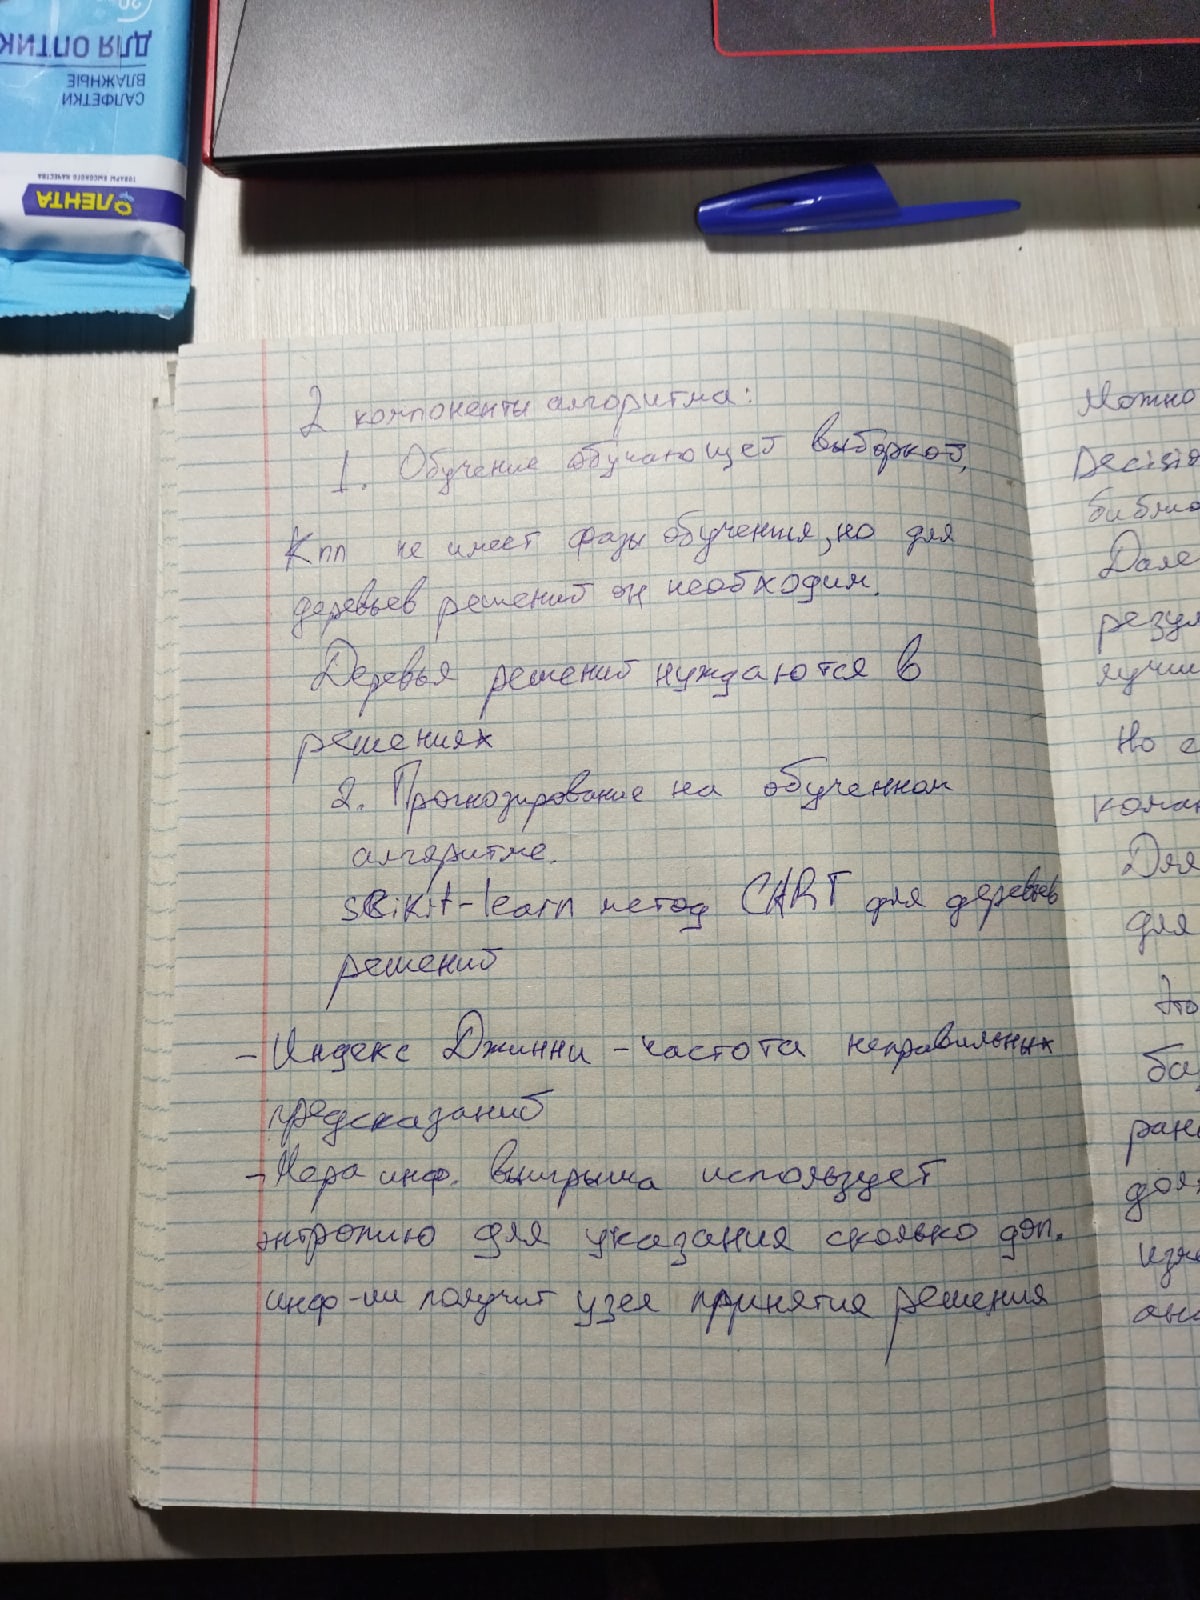 ДЛЯ ОПТИК
ВЛАЖНЫЕ
САЛФЕТКИ
ТОВАРЫ ВЫСОКОГО КАЧЕСТВА
ЛЕНТА
2 компоненты алгоритма:
1. Обучение обучающей выборкой,
Кnn не имеет фазы обучения, но для
деревьев решений он необходим.
Деревья решений нуждаются в
решениях
2. Прогнозирование на обученном
алгоритме.
scikit-learn метод CART для деревьев
решений
- Индекс Джинни - частота неправильных
предсказаний
- Мера инф. выигрыша использует
энтропию для указания сколько доп.
инф-ии получит узел принятия решения
Можно
Decisio
библио
Дале
резул
лучши
Но
коман
Для
для
Это